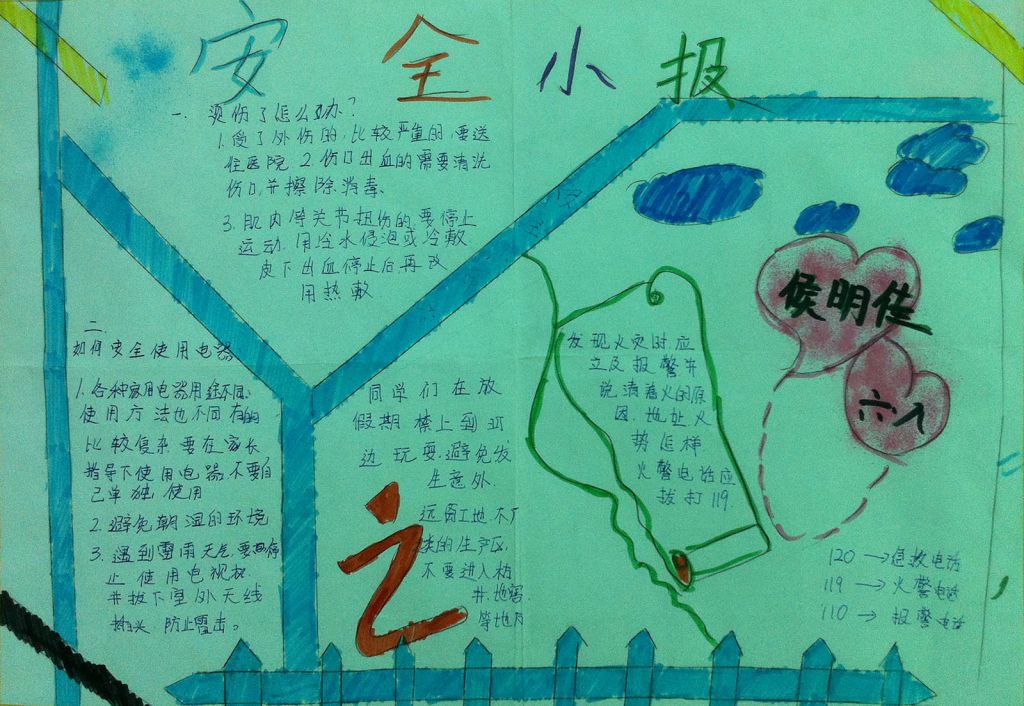 安全小报
一. 烫伤了怎么办?
1.受了外伤的,比较严重的,要送
住医院 2.伤口出血的需要清洗
伤口,并擦除消毒.
3.肌肉等关节扭伤的,要停止
运动.用冷水侵泡或冷敷
皮下出血停止后再改
用热敷
二.
如何安全使用电器
1.各种家用电器用途不同,
使用方法也不同有的
比较复杂要在家长
指导下使用电器,不要自
己单独使用
2.避免朝湿的环境
3.遇到雷雨天气,要停
止使用电视机,
并拔下室外天线
插头 防止雷击。
同学们在放
假期禁止到河
边玩耍.避免发
生意外.
之
不要进入枯
井.地窖
等地方
发现火灾时应
立及报警并
说清着火的原
因.地址火
势怎样
火警电话应
拨打119.
侯明佳
六八
120→急救电话
119→火警电话
110→报警电话